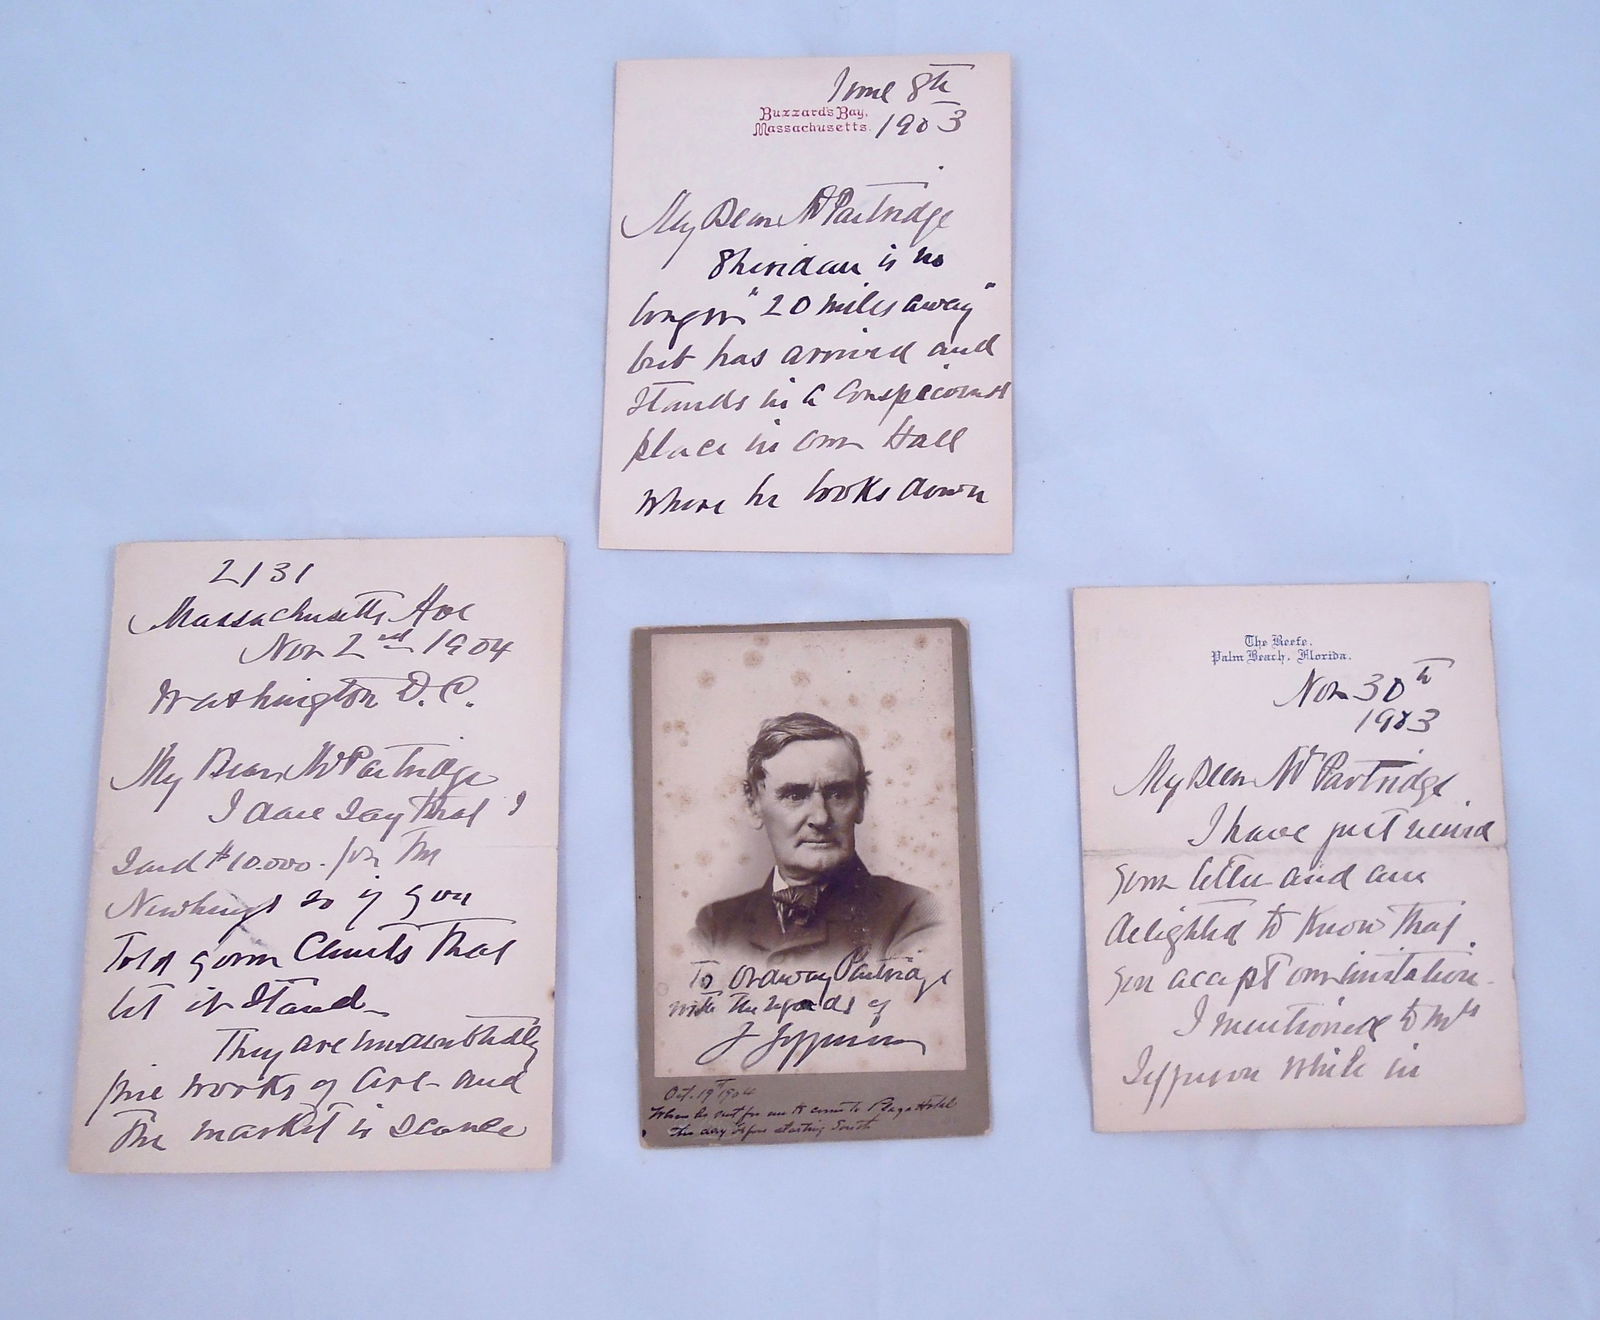 June 8th
Buzzard's Bay,
Massachusetts.
1903
My Dear Mr Partridge
Sheridan is no
longer "20 miles away"
but has arrived and
stands in a conspicuous
place in our Hall
where he looks down
2131
Massachusetts Ave
Nov 2nd 1904
Washington D.C.
My Dear Mr Partridge
I dare say that I
said $10.000. for the
so if you
told your clients that
let it stand
They are undoubtedly
fine works of art and
the market is scarce
To Ordway Partridge
with the regards of
J Jefferson
Oct. 19th 1904
When he sent for me to come to Plaza Hotel
the day before starting South
The Reefe,
Palm Beach, Florida.
Nov 30th
1903
My Dear Mr Partridge
I have just received
your letter and am
delighted to know that
you accept our invitation.
I mentioned to Mrs
Jefferson while in